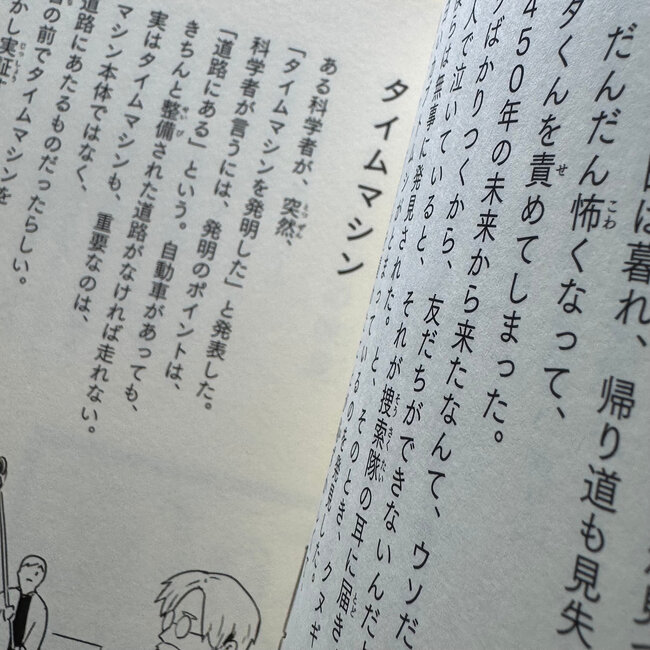 は暮れ、帰り道も見失
だんだん怖くなって、
タくんを責めてしまった。
450年の未来から来たなんて、ウソだ
ばかりつくから、友だちができないんだ
人で泣いていると、それが捜索隊の耳に届き
らは無事に発見された。
がとまっていると、そのとき、クヌギ
のを発見した。
タイムマシン
ある科学者が、突然、
「タイムマシンを発明した」と発表した。
科学者が言うには、発明のポイントは、
「道路にある」という。自動車があっても、
きちんと整備された道路がなければ走れない。
実はタイムマシンも、重要なのは、
マシン本体ではなく、
道路にあたるものだったらしい。
の前でタイムマシンを
かし実証